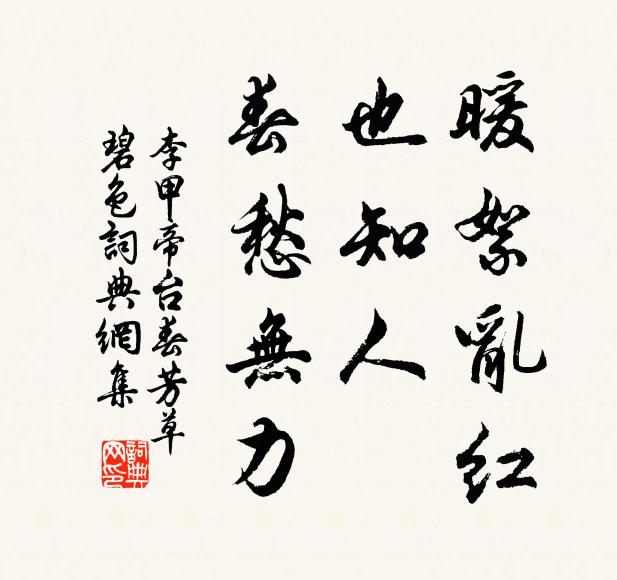 暖絮亂红
也知人
春愁無力
李甲帝台春芳草
碧色詞典網集
詞典网印